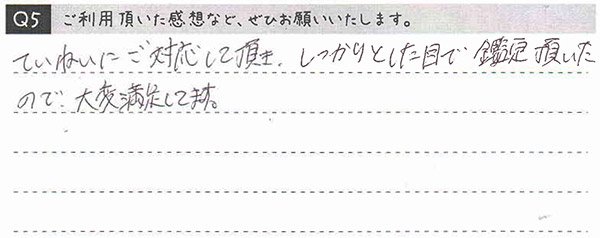 Q5 ご利用頂いた感想など、ぜひお願いいたします。
ていねいにご対応して頂き、しっかりとした目で鑑定頂いた
ので、大変満足してます。